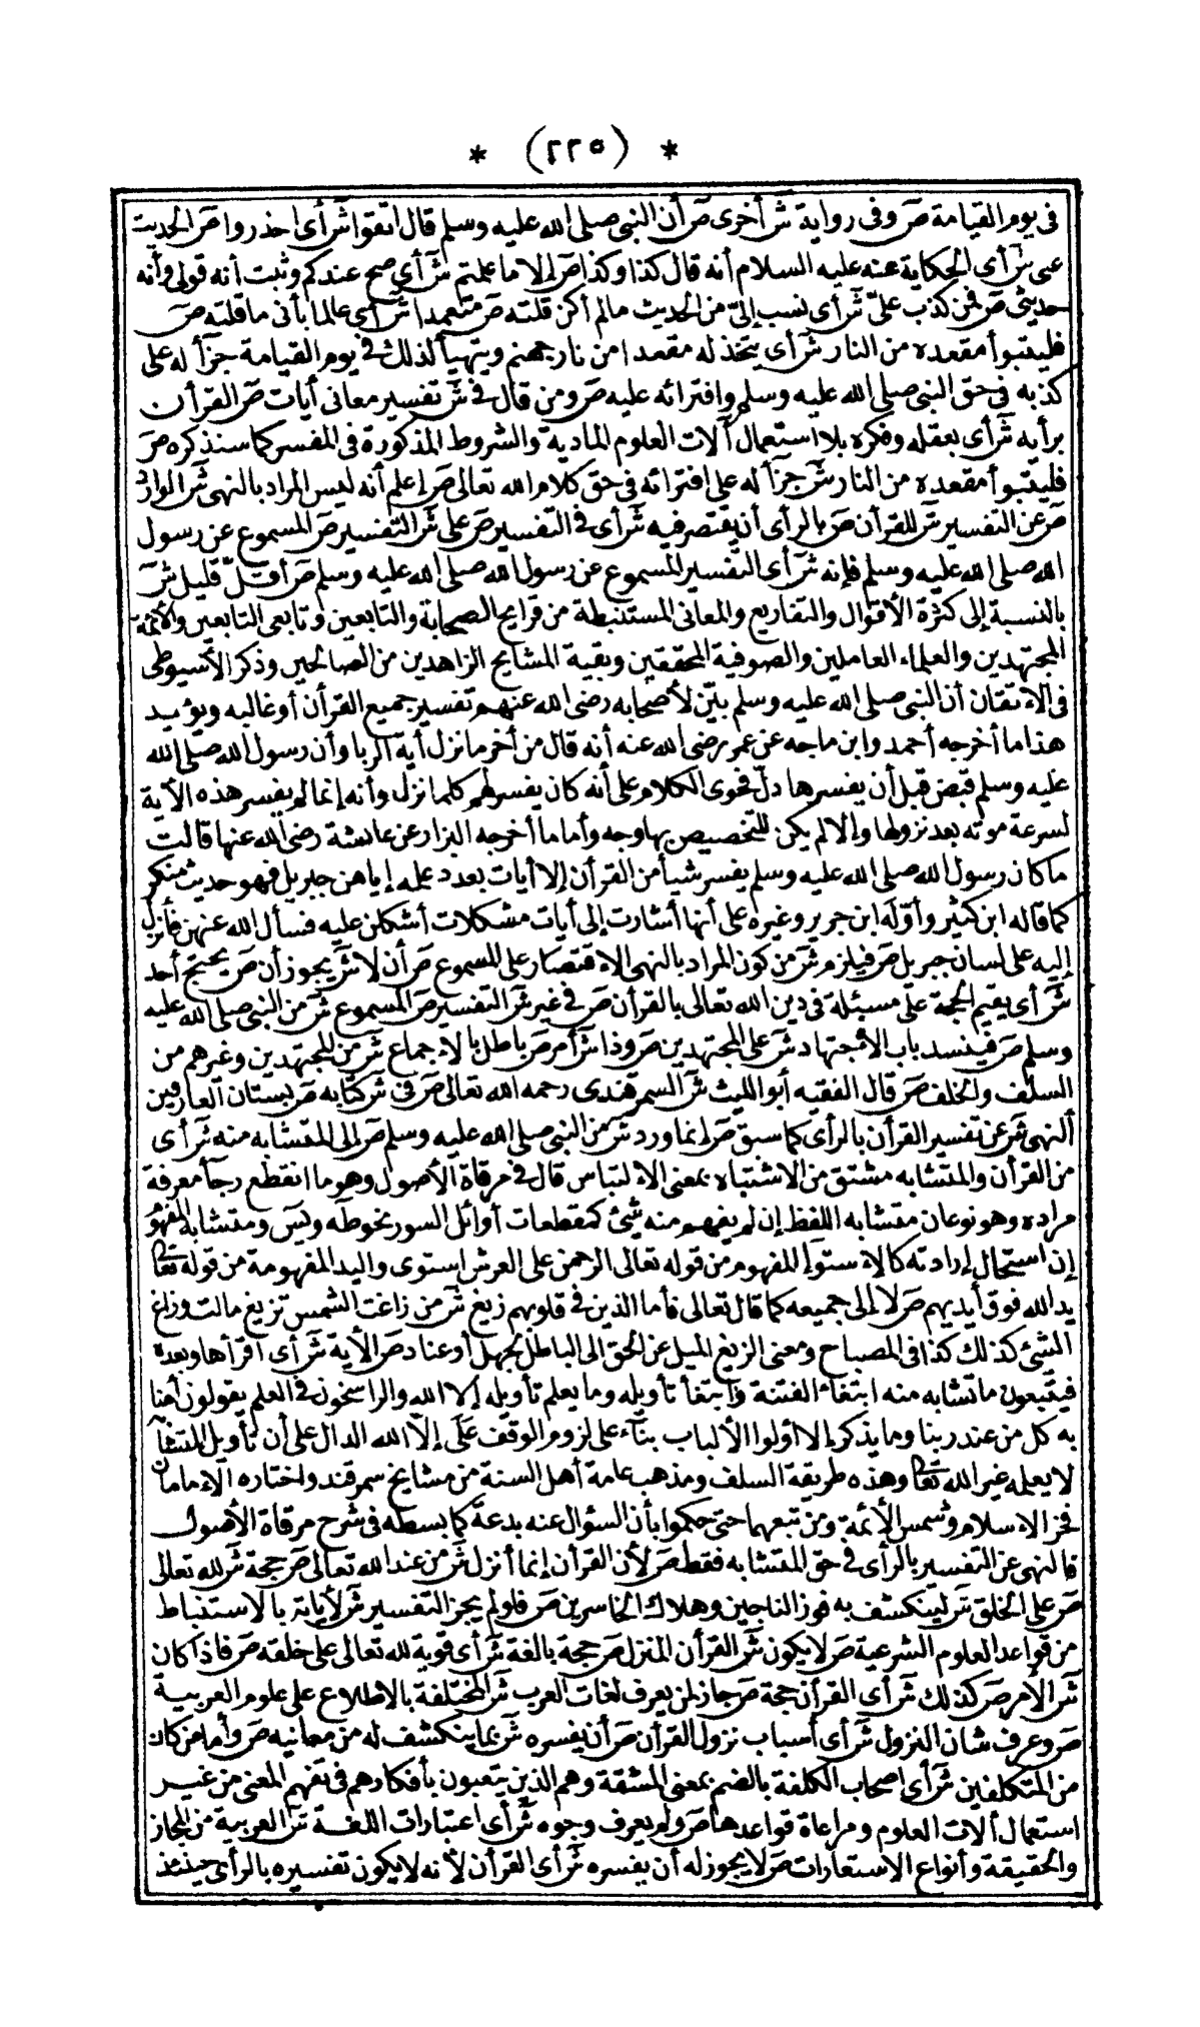 * (٢٢٥) *
في يوم القيامة ص وفى رواية ش أخرى ص أن النبي صلى الله عليه وسلم قال اتقوا ش أى احذروا ص الحديث
عنى ش أى الحكاية عنه عليه السلام أنه قال كذا وكذا ص إلا ما علمتم ش أى صح عندكم وثبت أنه قولى وأنه
حديثى ص فمن كذب علىّ ش أى نسب إلىّ من الحديث مالم أكن قلته ص متعمدا ش أى عالما بأنى ما قلته ص
فليتبوأ مقعده من النار ش أى يتخذ له مقعدا من نار جهنم ويتهيأ لذلك في يوم القيامة جزأ له على
كذبه في حق النبي صلى الله عليه وسلم وافترائه عليه ص ومن قال في ش تفسير معانى أيات ص القرأن
برأيه ش أى بعقله وفكره بلا استعمال آلات العلوم المادية والشروط المذكورة في المفسر كما سنذكره ص
فليتبوأ مقعده من النار ش جزأ له على افترائه في حق كلام الله تعالى ص إعلم أنه ليس المراد بالنهى ش الوارد
ص عن التفسير ش للقرأن ص بالرأى أن يقتصر فيه ش أى في التفسير ص على ش التفسير ص المسموع عن رسول
الله صلى الله عليه وسلم فإنه ش أى التفسير المسموع عن رسول الله صلى الله عليه وسلم ص أقلّ قليل ش
بالنسبة إلى كثرة الأقوال والتفاريع والمعانى المستنبطة من قرايح الصحابة والتابعين وتابعى التابعين والأئمة
المجتهدين والعلماء العاملين والصوفية المحققين وبقية المشايخ الزاهدين من الصالحين وذكر الأسيوطى
في الاتقان أن النبي صلى الله عليه وسلم بيّن لأصحابه رضى الله عنهم تفسير جميع القرأن أو غالبه ويؤيد
هذا ما أخرجه أحمد وابن ماجه عن عمر رضى الله عنه أنه قال من أخر ما نزل أية الربا وأن رسول الله صلى الله
عليه وسلم قبض قبل أن يفسرها دلّ فحوى الكلام على أنه كان يفسر لهم كلما نزل وأنه إنما لم يفسر هذه الأية
لسرعة موته بعد نزولها وإلا لم يكن للتخصيص بها وجه وأما ما أخرجه البزار عن عايشة رضى الله عنها قالت
ما كان رسول الله صلى الله عليه وسلم يفسر شيأ من القرأن إلا أيات بعدد علمه إياهن جبريل فهو حديث منكر
كما قاله ابن كثير وأوّله ابن جرير وغيره على أنها أشارت إلى أيات مشكلات أشكلن عليه فسأل الله عنهن فأنزل
إليه على لسان جبريل ص فيلزم ش من كون المراد بالنهى الاقتصار على المسموع ص أن لا ش يجوز أن ص يحتج أحد
ش أى يقيم الحجة على مسئلة في دين الله تعالى بالقرأن ص في غير ش التفسير ص المسموع ش من النبي صلى الله عليه
وسلم ص فينسد باب الأجتهاد ش على المجتهدين ص وذا ش أمر ص باطل بالاجماع ش من المجتهدين وغيرهم من
السلف والخلف ص قال الفقيه أبو الليث ش السمرقندى رحمه الله تعالى ص في ش كتابه ص بستان العارفين
ألنهى ش عن تفسير القرأن بالرأى كما سبق ص إنما ورد ش من النبي صلى الله عليه وسلم ص إلى المتشابه منه ش أى
من القرأن والمتشابه مشتق من الاشتباه بمعنى الالتباس قال في مرقاة الأصول وهو ما انقطع رجأ معرفة
مراده وهو نوعان متشابه اللفظ إن لم يفهم منه شئ كمقطعات أوائل السور نحو طه ويس ومتشابه المفهوم
إن استحال إرادته كالاستوأ المفهوم من قوله تعالى الرحمن على العرش استوى واليد المفهومة من قوله تعا
يد الله فوق أيديهم ص لا إلى جميعه كما قال تعالى فأما الذين في قلوبهم زيغ ش من زاغت الشمس تزيغ مالت وزاغ
الشئ كذلك كذا فى المصباح ومعنى الزيغ الميل عن الحق إلى الباطل بجهل أو عناد ص الأية ش أى اقرأها وبعده
فيتبعون ما تشابه منه ابتغاء الفتنة وابتغأ تأويله وما يعلم تأويله إلا الله والراسخون في العلم يقولون أمنا
به كل من عند ربنا وما يذكر إلا أولوا الألباب بناء على لزوم الوقف على إلّا الله الدال على أن تأويل المتشا
لا يعلمه غير الله تعا وهذه طريقة السلف ومذهب عامة أهل السنة من مشايخ سمرقند واختاره الامامان
فخر الاسلام وشمس الأئمة ومن تبعهما حتى حكموا بأن السؤال عنه بدعة كما بسطه في شرح مرقاة الأصول
فالنهى عن التفسير بالرأى في حق المتشابه فقط ص لأن القرأن إنما أنزل ش من عند الله تعالى ص حجة ش لله تعالى
ص على الخلق ش لينكشف به فوز الناجين وهلاك الخاسرين ص فلو لم يجز التفسير ش لأياته بالاستنباط
من قواعد العلوم الشرعية ص لا يكون ش القرأن المنزل ص حجة بالغة ش أى قوية لله تعالى على خلقه ص فاذا كان
ش الأمر ص كذلك ش أى القرأن حجة ص جاز لمن يعرف لغات العرب ش المختلفة بالاطلاع على علوم العربية
ص وعرف شان النزول ش أى أسباب نزول القرأن ص أن يفسره ش بما ينكشف له من معانيه ص وأما من كان
من المتكلفين ش أى اصحاب الكلفة بالضم بمعنى المشقة وهم الذين يتعبون بأفكارهم في تفهم المعنى من غير
استعمال ألات العلوم ومراعاة قواعدها ص ولم يعرف وجوه ش أى اعتبارات اللغة ش العربية من المجاز
والحقيقة وأنواع الاستعارات ص لا يجوز له أن يفسره ش أى القرأن لأنه لا يكون تفسيره بالرأى حينئذ